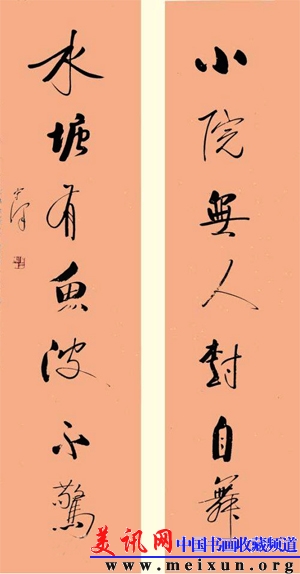 小院無人樹自舞
水塘有魚波不驚
美讯网 中国书画收藏频道
www.meixun.org